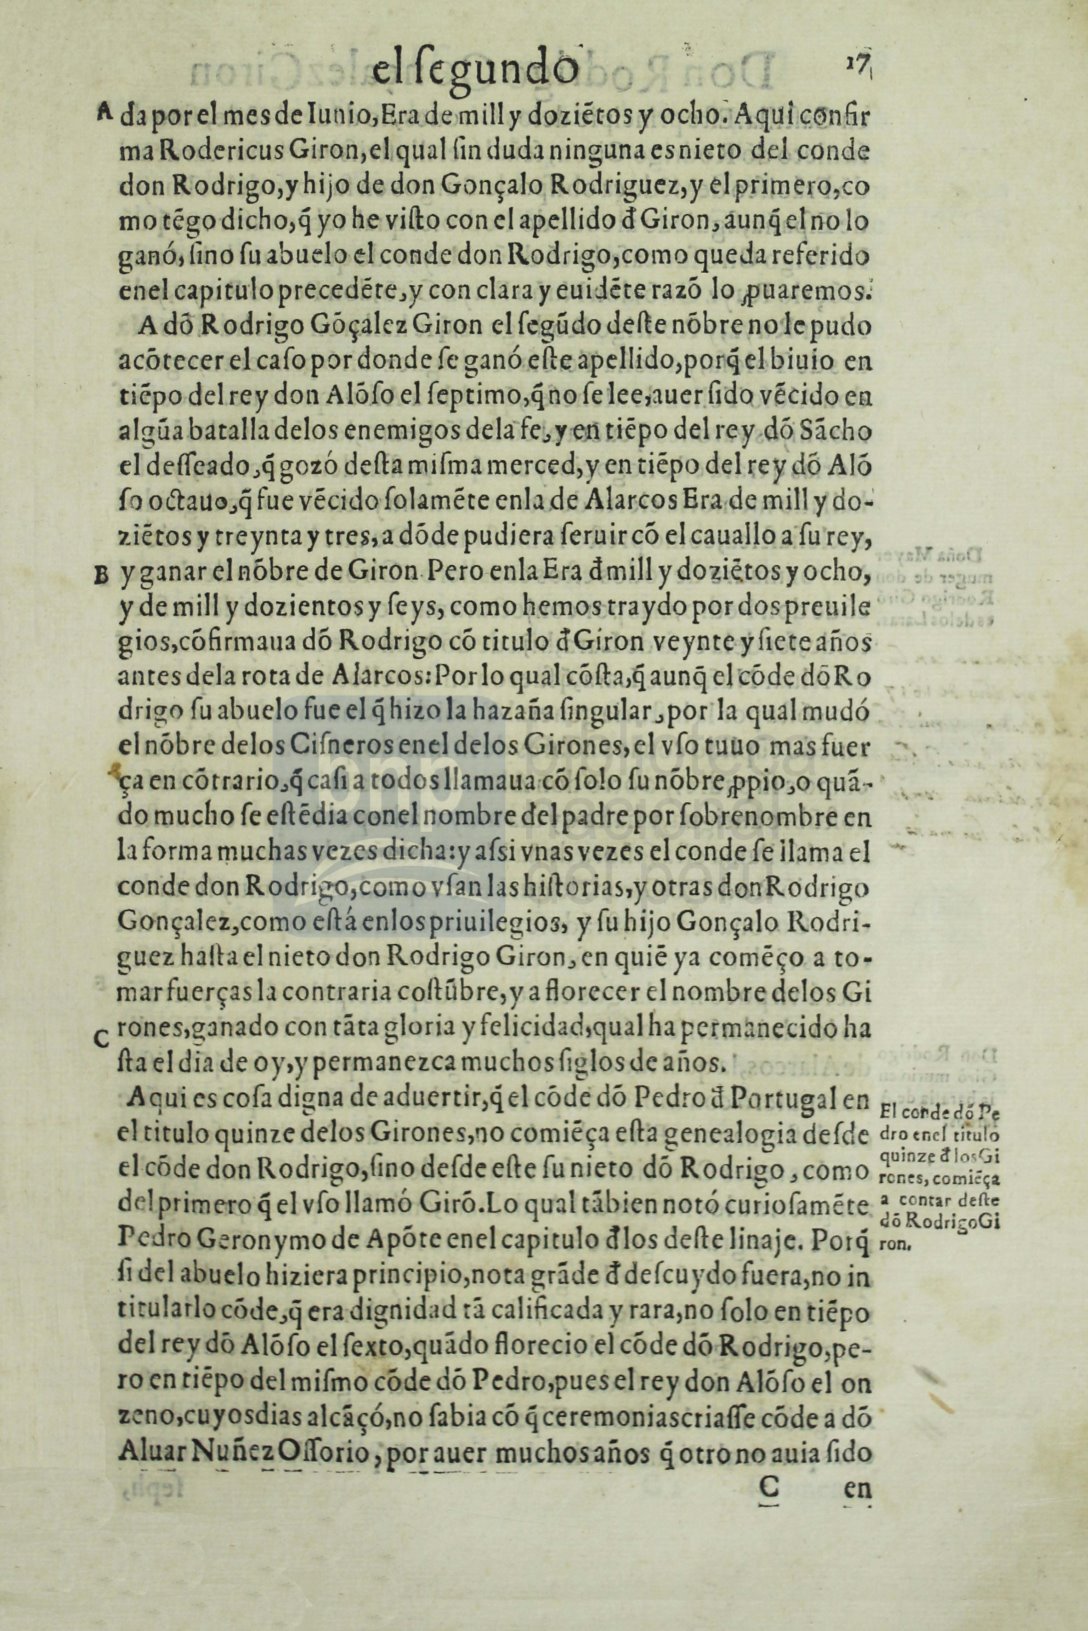 el ſegundo
17
A da por el mes de Iunio, Era de mill y doziẽtos y ocho. Aqui confir
ma Rodericus Giron, el qual ſin duda ninguna es nieto del conde
don Rodrigo, y hijo de don Gonçalo Rodriguez, y el primero, co
mo tẽgo dicho, q̃ yo he viſto con el apellido đ Giron, aunq̃ el no lo
ganó, ſino ſu abuelo el conde don Rodrigo, como queda referido
enel capitulo precedẽte, y con clara y euidẽte razõ lo ꝓuaremos.
A dõ Rodrigo Gõçalez Giron el ſegũdo deſte nõbre no le pudo
acõtecer el caſo por donde ſe ganó eſte apellido, porq̃ el biuio en
tiẽpo del rey don Alõſo el ſeptimo, q̃ no ſe lee, auer ſido vẽcido en
algũa batalla delos enemigos dela fe, y en tiẽpo del rey dõ Sãcho
el deſſeado, q̃ gozó deſta miſma merced, y en tiẽpo del rey dõ Alõ
ſo octauo, q̃ fue vẽcido ſolamẽte enla de Alarcos Era de mill y do-
ziẽtos y treynta y tres, a dõde pudiera ſeruir cõ el cauallo a ſu rey,
B y ganar el nõbre de Giron. Pero enla Era đ mill y doziẽtos y ocho,
y de mill y dozientos y ſeys, como hemos traydo por dos preuile
gios, cõfirmaua dõ Rodrigo cõ titulo đ Giron veynte y ſiete años
antes dela rota de Alarcos: Por lo qual cõſta, q̃ aunq̃ el cõde dõ Ro
drigo ſu abuelo fue el q̃ hizo la hazaña ſingular, por la qual mudó
el nõbre delos Ciſneros enel delos Girones, el vſo tuuo mas fuer
ça en cõtrario, q̃ caſi a todos llamaua cõ ſolo ſu nõbre ꝓpio, o quã-
do mucho ſe eſtẽdia conel nombre del padre por ſobrenombre en
la forma muchas vezes dicha: y aſsi vnas vezes el conde ſe llama el
conde don Rodrigo, como vſan las hiſtorias, y otras don Rodrigo
Gonçalez, como eſtá enlos priuilegios, y ſu hijo Gonçalo Rodri-
guez haſta el nieto don Rodrigo Giron, en quiẽ ya comẽço a to-
mar fuerças la contraria coſtũbre, y a florecer el nombre delos Gi
C rones, ganado con tãta gloria y felicidad, qual ha permanecido ha
ſta el dia de oy, y permanezca muchos ſiglos de años.
Aqui es coſa digna de aduertir, q̃ el cõde dõ Pedro đ Portugal en
el titulo quinze delos Girones, no comiẽça eſta genealogia deſde
el cõde don Rodrigo, ſino deſde eſte ſu nieto dõ Rodrigo, como
del primero q̃ el vſo llamó Girõ. Lo qual tãbien notó curioſamẽte
Pedro Geronymo de Apõte enel capitulo đlos deſte linaje. Porq̃
ſi del abuelo hiziera principio, nota grãde đ deſcuydo fuera, no in
titularlo cõde, q̃ era dignidad tã calificada y rara, no ſolo en tiẽpo
del rey dõ Alõſo el ſexto, quãdo florecio el cõde dõ Rodrigo, pe-
ro en tiẽpo del miſmo cõde dõ Pedro, pues el rey don Alõſo el on
zeno, cuyos dias alcãçó, no ſabia cõ q̃ ceremonias criaſſe cõde a dõ
Aluar Nuñez Oſſorio, por auer muchos años q̃ otro no auia ſido
C en
El conde dõ Pe
dro enel titulo
quinze đlos Gi
rones, comiẽça
a contar deſte
dõ Rodrigo Gi
ron.